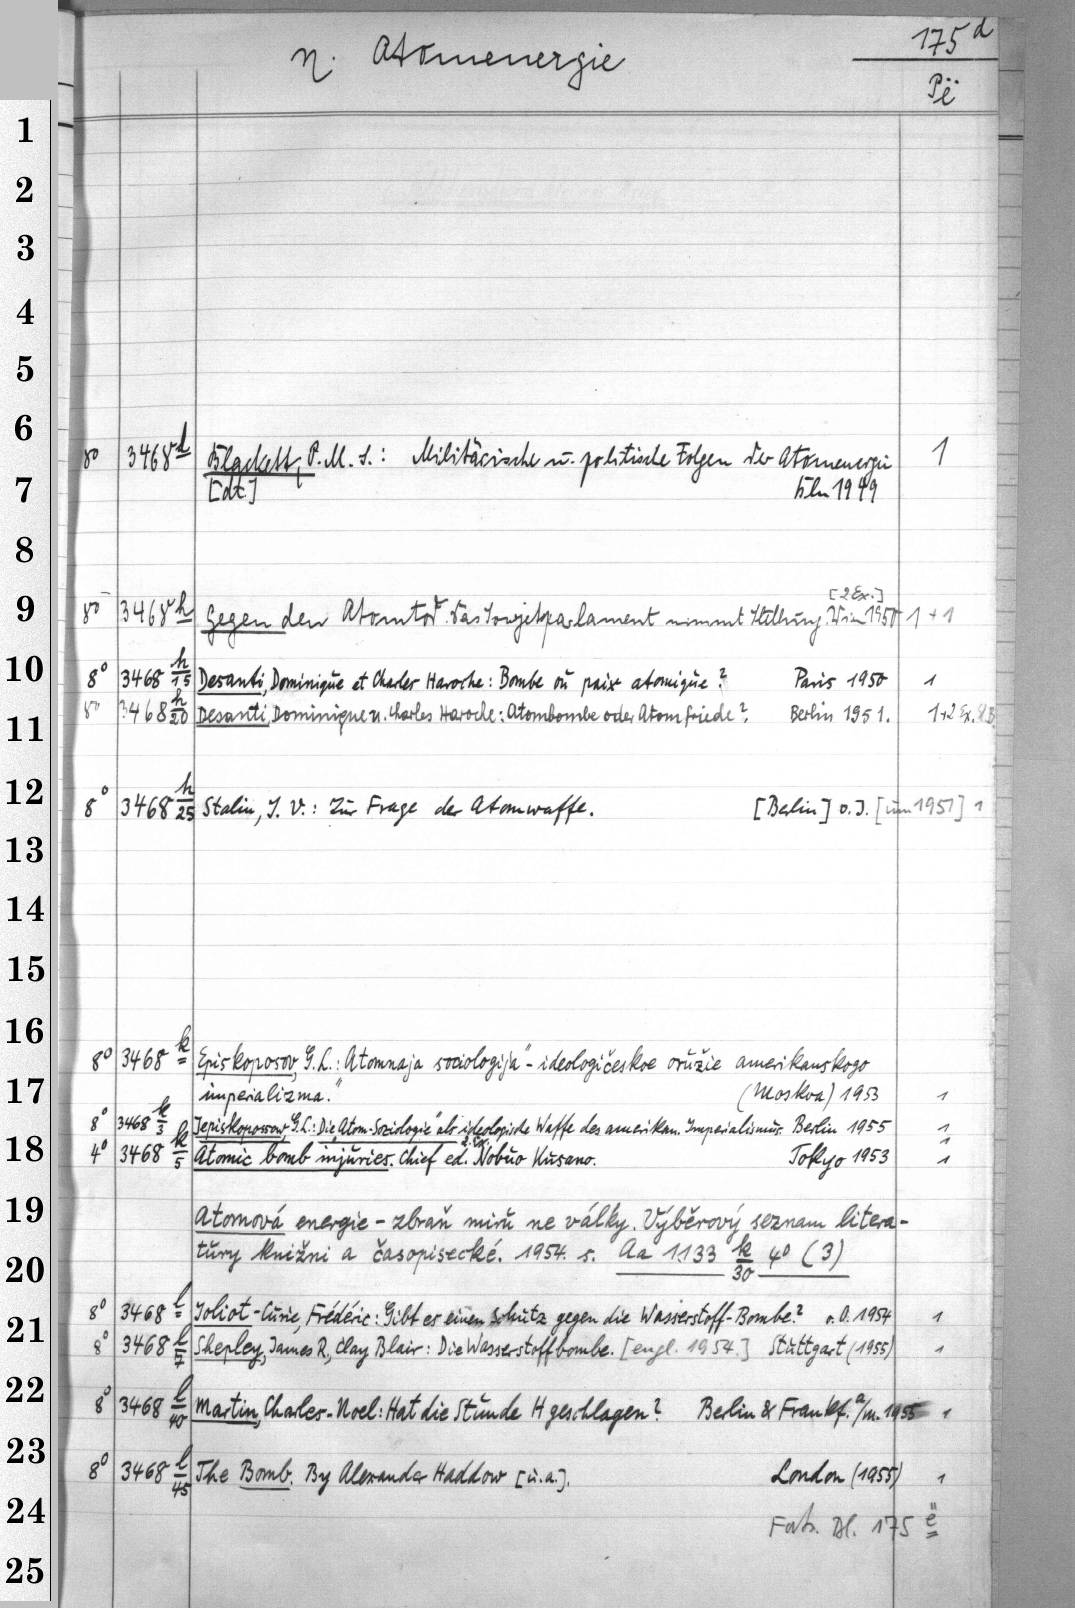 n. Atomenergie
175 d
Pë
1
2
3
4
5
6
8° 3468 d Blackett, P. M. S.: Militärische u. politische Folgen der Atomenergie 1
7
[dt.] Bln 1949
8
[2 Ex.]
9
8° 3468 h Gegen den Atomtod. Das Sowjetparlament nimmt Stellung. Wien 1950 1 + 1
10
8° 3468 h/15 Desanti, Dominique et Charles Haroche: Bombe ou paix atomique? Paris 1950 1
8° 3468 h/20 Desanti, Dominique u. Charles Haroche: Atombombe oder Atomfriede? Berlin 1951. 1+2 Ex.
11
12
8° 3468 h/25 Stalin, J. V.: Zur Frage der Atomwaffe. [Berlin] o. J. [um 1951] 1
13
14
15
16
8° 3468 k Episkoposov, G. L.: „Atomnaja sociologija" - ideologičeskoe oružie amerikanskogo
17
imperializma." (Moskva) 1953 1
8° 3468 k/3 Jepiskopossow, G. L.: Die „Atom-Soziologie" als ideologische Waffe des amerikan. Imperialismus. Berlin 1955 1
2. Ex. 1
18
4° 3468 k/5 Atomic bomb injuries. Chief ed. Nobuo Kusano. Tokyo 1953 1
19
Atomová energie - zbraň miru ne války. Výběrový seznam litera-
tury knižni a časopisecké. 1954. s. Aa 1133 k/30 4° (3)
20
8° 3468 l Joliot-Curie, Frédéric: Gibt es einen Schutz gegen die Wasserstoff-Bombe? o. O. 1954 1
21
8° 3468 l/7 Shepley, James R., Clay Blair: Die Wasserstoffbombe. [engl. 1954.] Stuttgart (1955) 1
22
8° 3468 l/40 Martin, Charles-Noel: Hat die Stunde H geschlagen? Berlin & Frankf. a/m. 1955 1
23
8° 3468 l/45 The Bomb. By Alexander Haddow [u. a.]. London (1955) 1
24
Forts. Bl. 175 ë
25